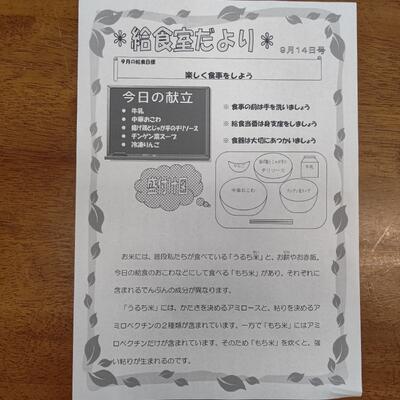 ＊給食室だより＊
9月14日号
9月の給食目標
楽しく食事をしよう
今日の献立
● 牛乳
● 中華おこわ
● 揚げ鶏とじゃが芋のチリソース
● チンゲン菜スープ
● 冷凍りんご
※ 食事の前は手を洗いましょう
※ 給食当番は身支度をしましょう
※ 食器は大切にあつかいましょう
盛り付け図
りんご
揚げ鶏とじゃが芋の
チリソース
牛乳
中華おこわ
チンゲン菜スープ
お米には、普段私たちが食べている「うるち米」と、お餅やお赤飯、
今日の給食のおこわなどにして食べる「もち米」があり、それぞれに
含まれるでんぷんの成分が異なります。
「うるち米」には、かたさを決めるアミロースと、粘りを決めるア
ミロペクチンの２種類が含まれています。一方で「もち米」にはアミ
ロペクチンだけが含まれています。そのため「もち米」を炊くと、強
い粘りが生まれるのです。